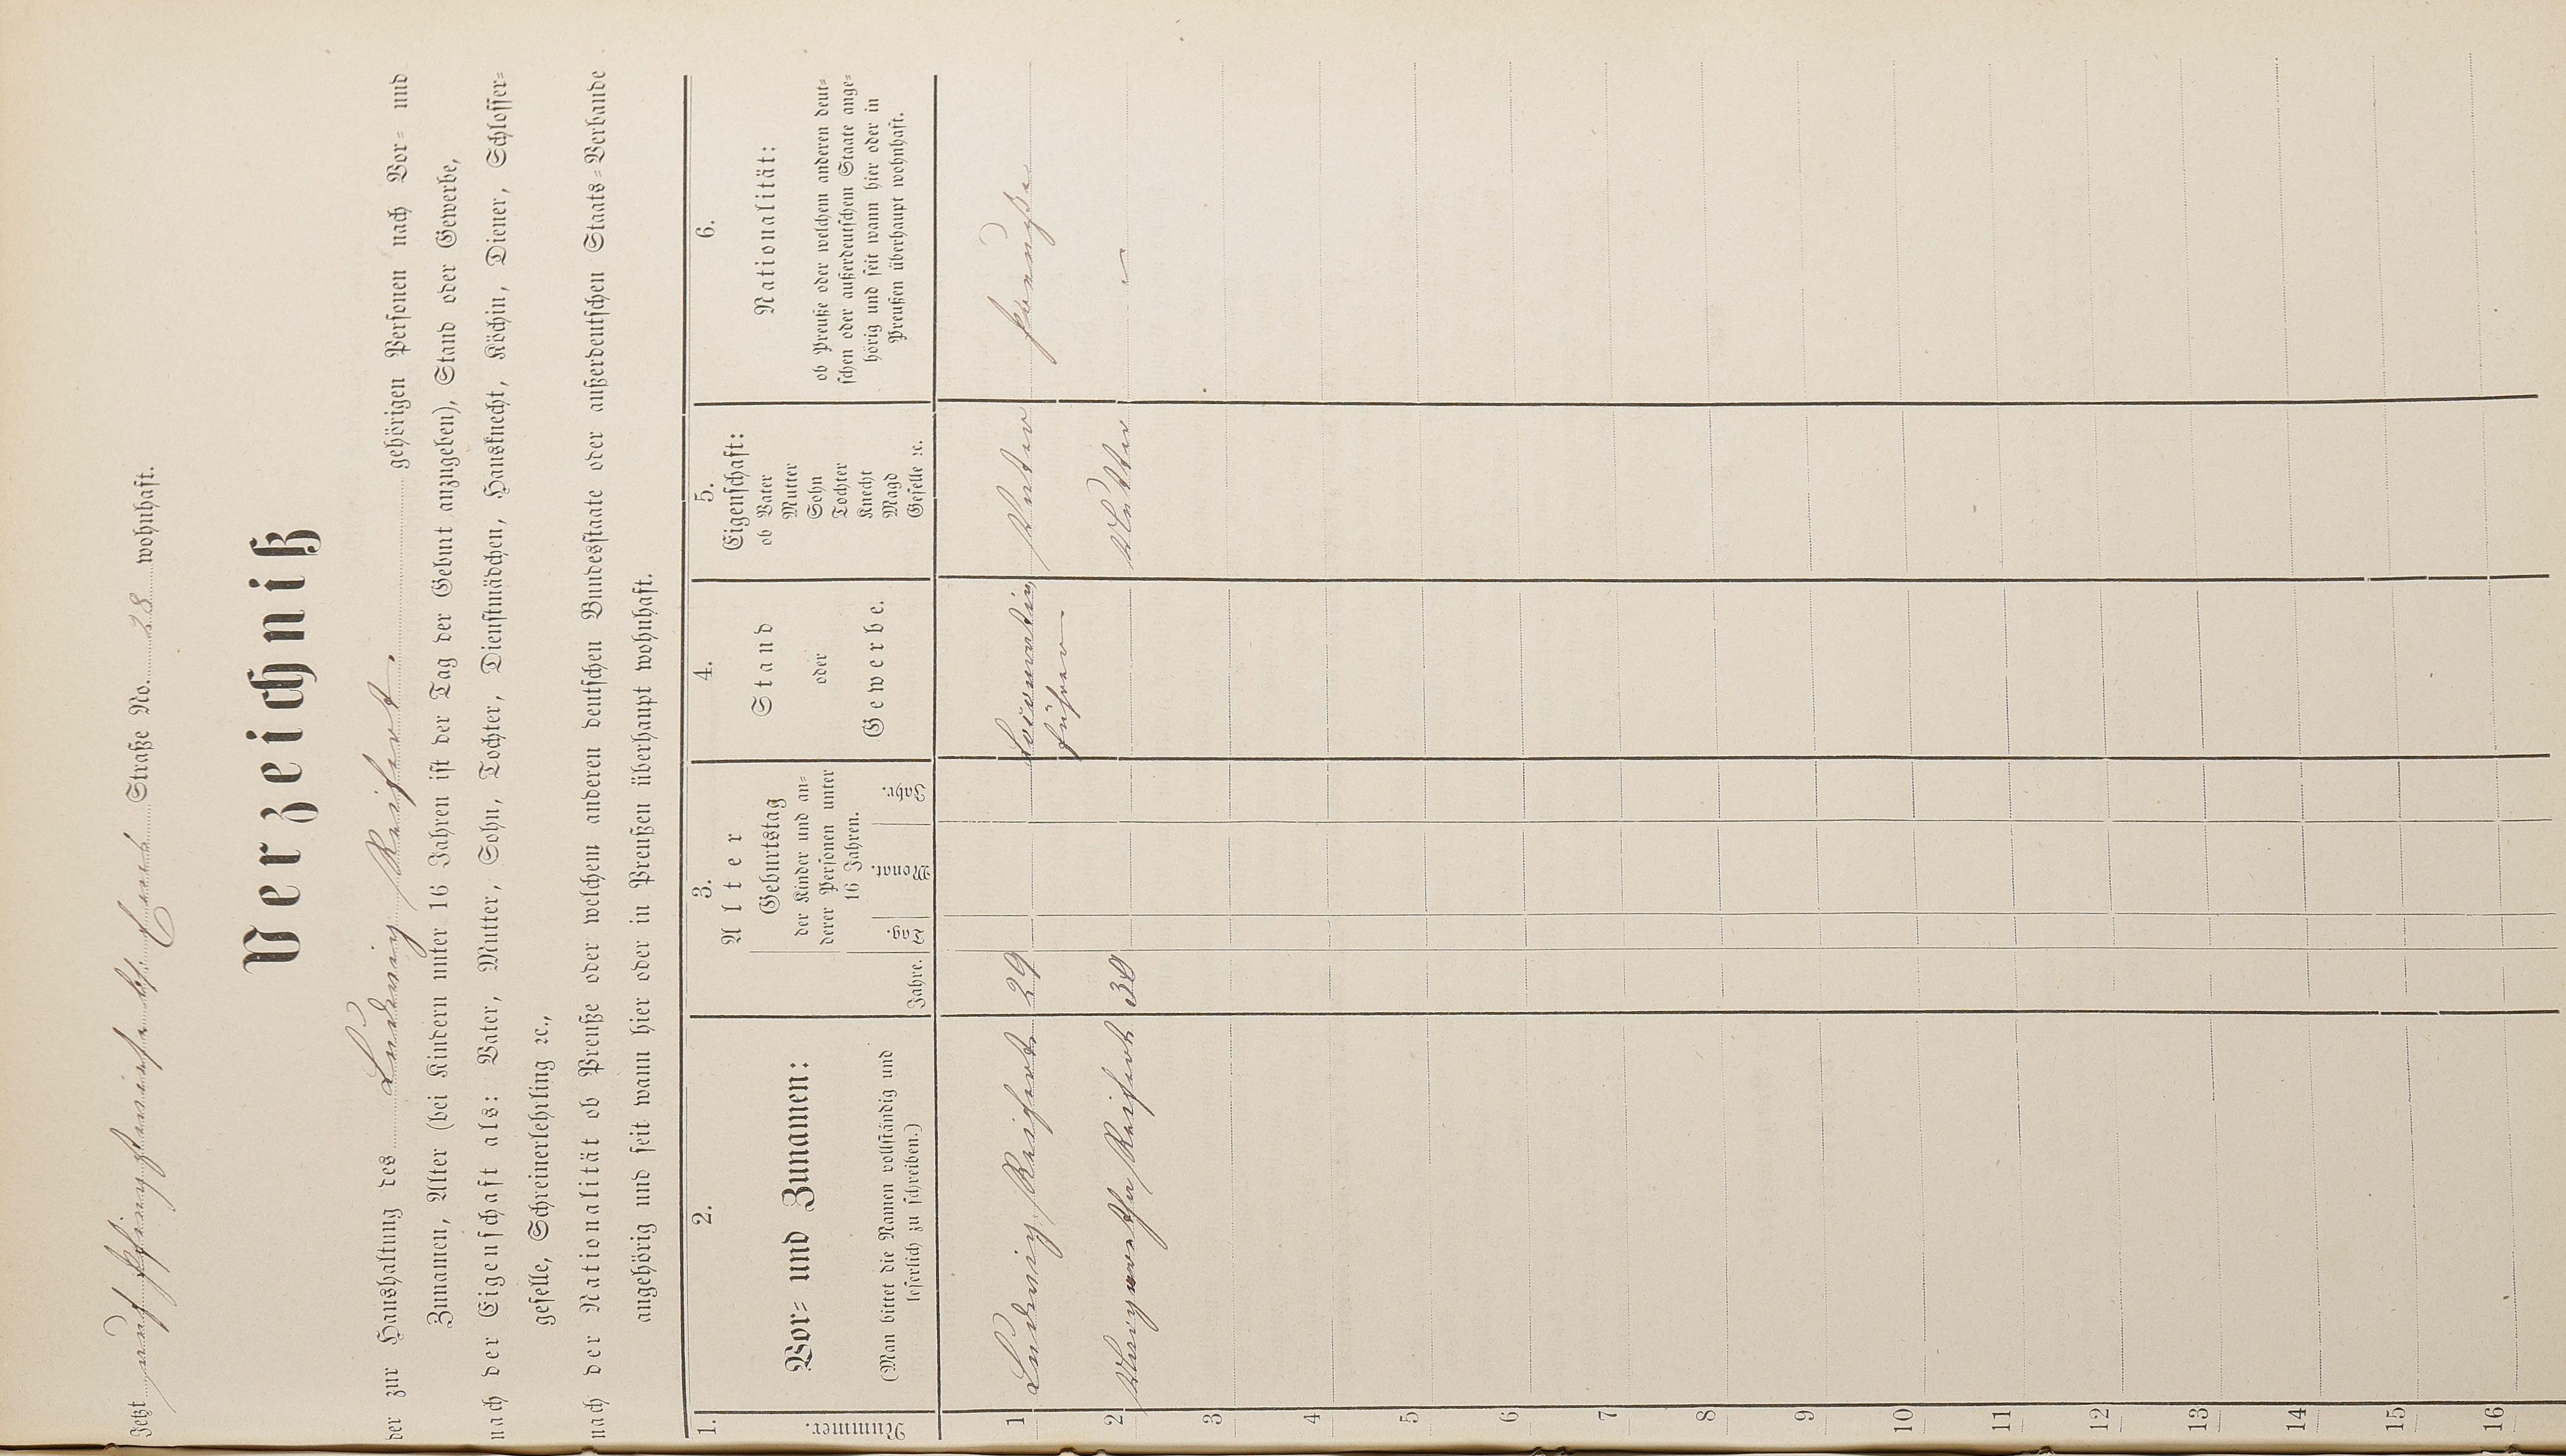 Jetzt Straße No. 28 wohnhaft.
Verzeichniß
der zur Haushaltung des Ludwig Reifert. gehörigen Personen nach Vor= und
Zunamen, Alter (bei Kindern unter 16 Jahren ist der Tag der Geburt anzugeben), Stand oder Gewerbe,
nach der Eigenschaft als: Vater, Mutter, Sohn, Tochter, Dienstmädchen, Hausknecht, Köchin, Diener, Schlosser=
geselle, Schreinerlehrling ꝛc.,
nach der Nationalität ob Preuße oder welchem anderen deutschen Bundesstaate oder außerdeutschen Staats=Verbande
angehörig und seit wann hier oder in Preußen überhaupt wohnhaft.
1.
Nummer.
2.
Vor= und Zunamen:
(Man bittet die Namen vollständig und
leserlich zu schreiben.)
3.
Alter
Jahre.
Geburtstag
der Kinder und an=
derer Personen unter
16 Jahren.
Tag.
Monat.
Jahr.
4.
Stand
oder
Gewerbe.
5.
Eigenschaft:
ob Vater
Mutter
Sohn
Tochter
Knecht
Magd
Geselle ꝛc.
6.
Nationalität:
ob Preuße oder welchem anderen deut=
schen oder außerdeutschen Staate ange=
hörig und seit wann hier oder in
Preußen überhaupt wohnhaft.
1 Ludwig Reifert 29 Locomotiv Vater Preuße
führer
2 Margarethe Reifert 30 Mutter "
3
4
5
6
7
8
9
10
11
12
13
14
15
16